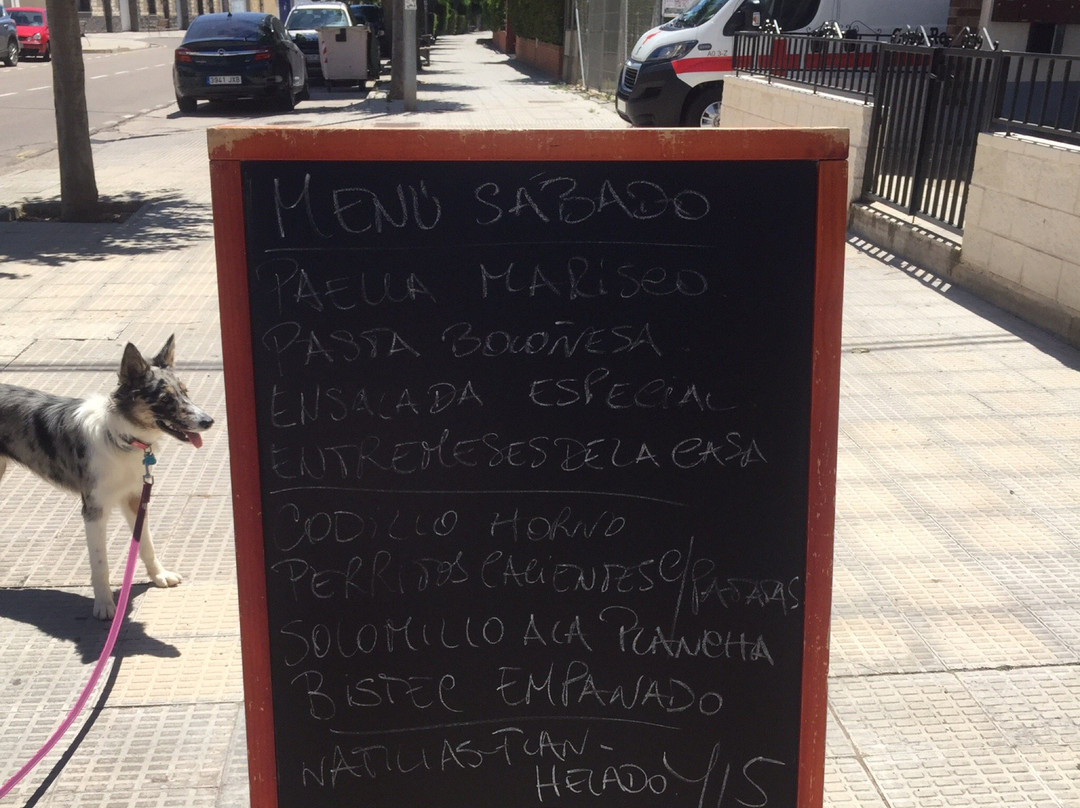 MENÚ SÁBADO
PAELLA MARISCO.
PASTA BOLOÑESA.
ENSALADA ESPECIAL.
ENTREMESES DE LA CASA
CODILLO HORNO
PERRITOS CALIENTES C/PATATAS
SOLOMILLO A LA PLANCHA
BISTEC EMPANADO
NATILLAS-FLAN-
HELADO.